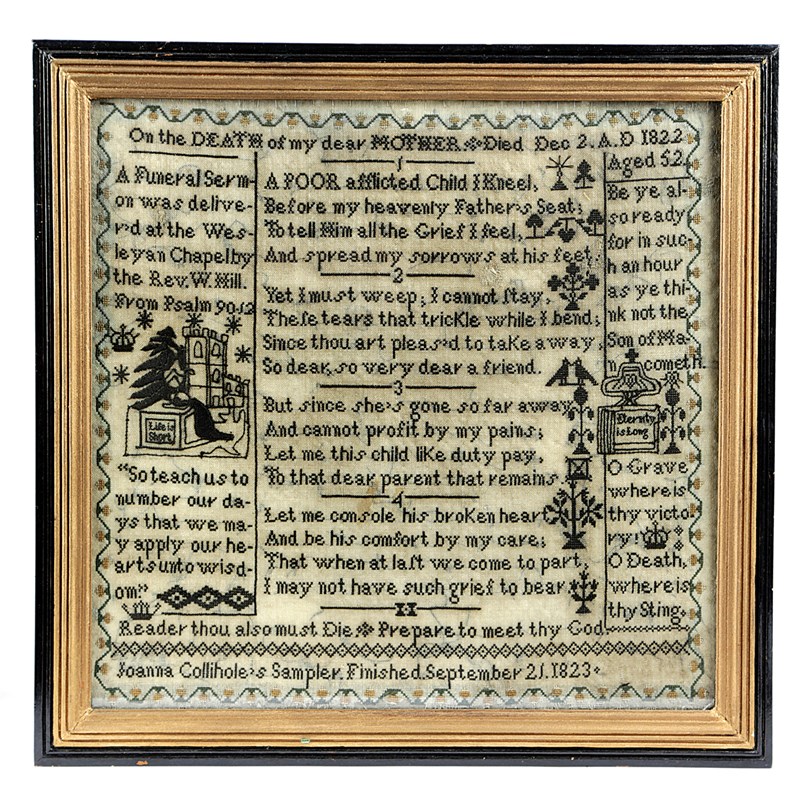 On the DEATH of my dear MOTHER Died Dec 2. A.D 1822
Aged 52
A Funeral Serm-
on was delive-
r'd at the Wes-
leyan Chapel by
the Rev. W. Hill.
From Psalm 90 12
Life is
Short
"So teach us to
number our da-
ys that we ma-
y apply our he-
arts unto wisd-
om"
1
A POOR afflicted Child I Kneel,
Before my heavenly Father's Seat;
To tell Him all the Grief I feel,
And spread my sorrows at his feet.
2
Yet I must weep; I cannot ſtay,
Theſe tears that trickle while I bend;
Since thou art pleas'd to take away,
So dear, so very dear a friend.
3
But since she's gone so far away
And cannot profit by my pains;
Let me this child like duty pay,
To that dear parent that remains.
4
Let me console his broken heart
And be his comfort by my care;
That when at laſt we come to part,
I may not have such grief to bear.
Be ye al-
so ready
for in suc-
h an hour
as ye thi-
nk not the
Son of Ma-
n cometh.
Eternity
is Long
O Grave
where is
thy victo-
ry!
O Death,
where is
thy Sting.
Reader thou also must Die Prepare to meet thy God
Joanna Collihole's Sampler. Finished. September 21. 1823